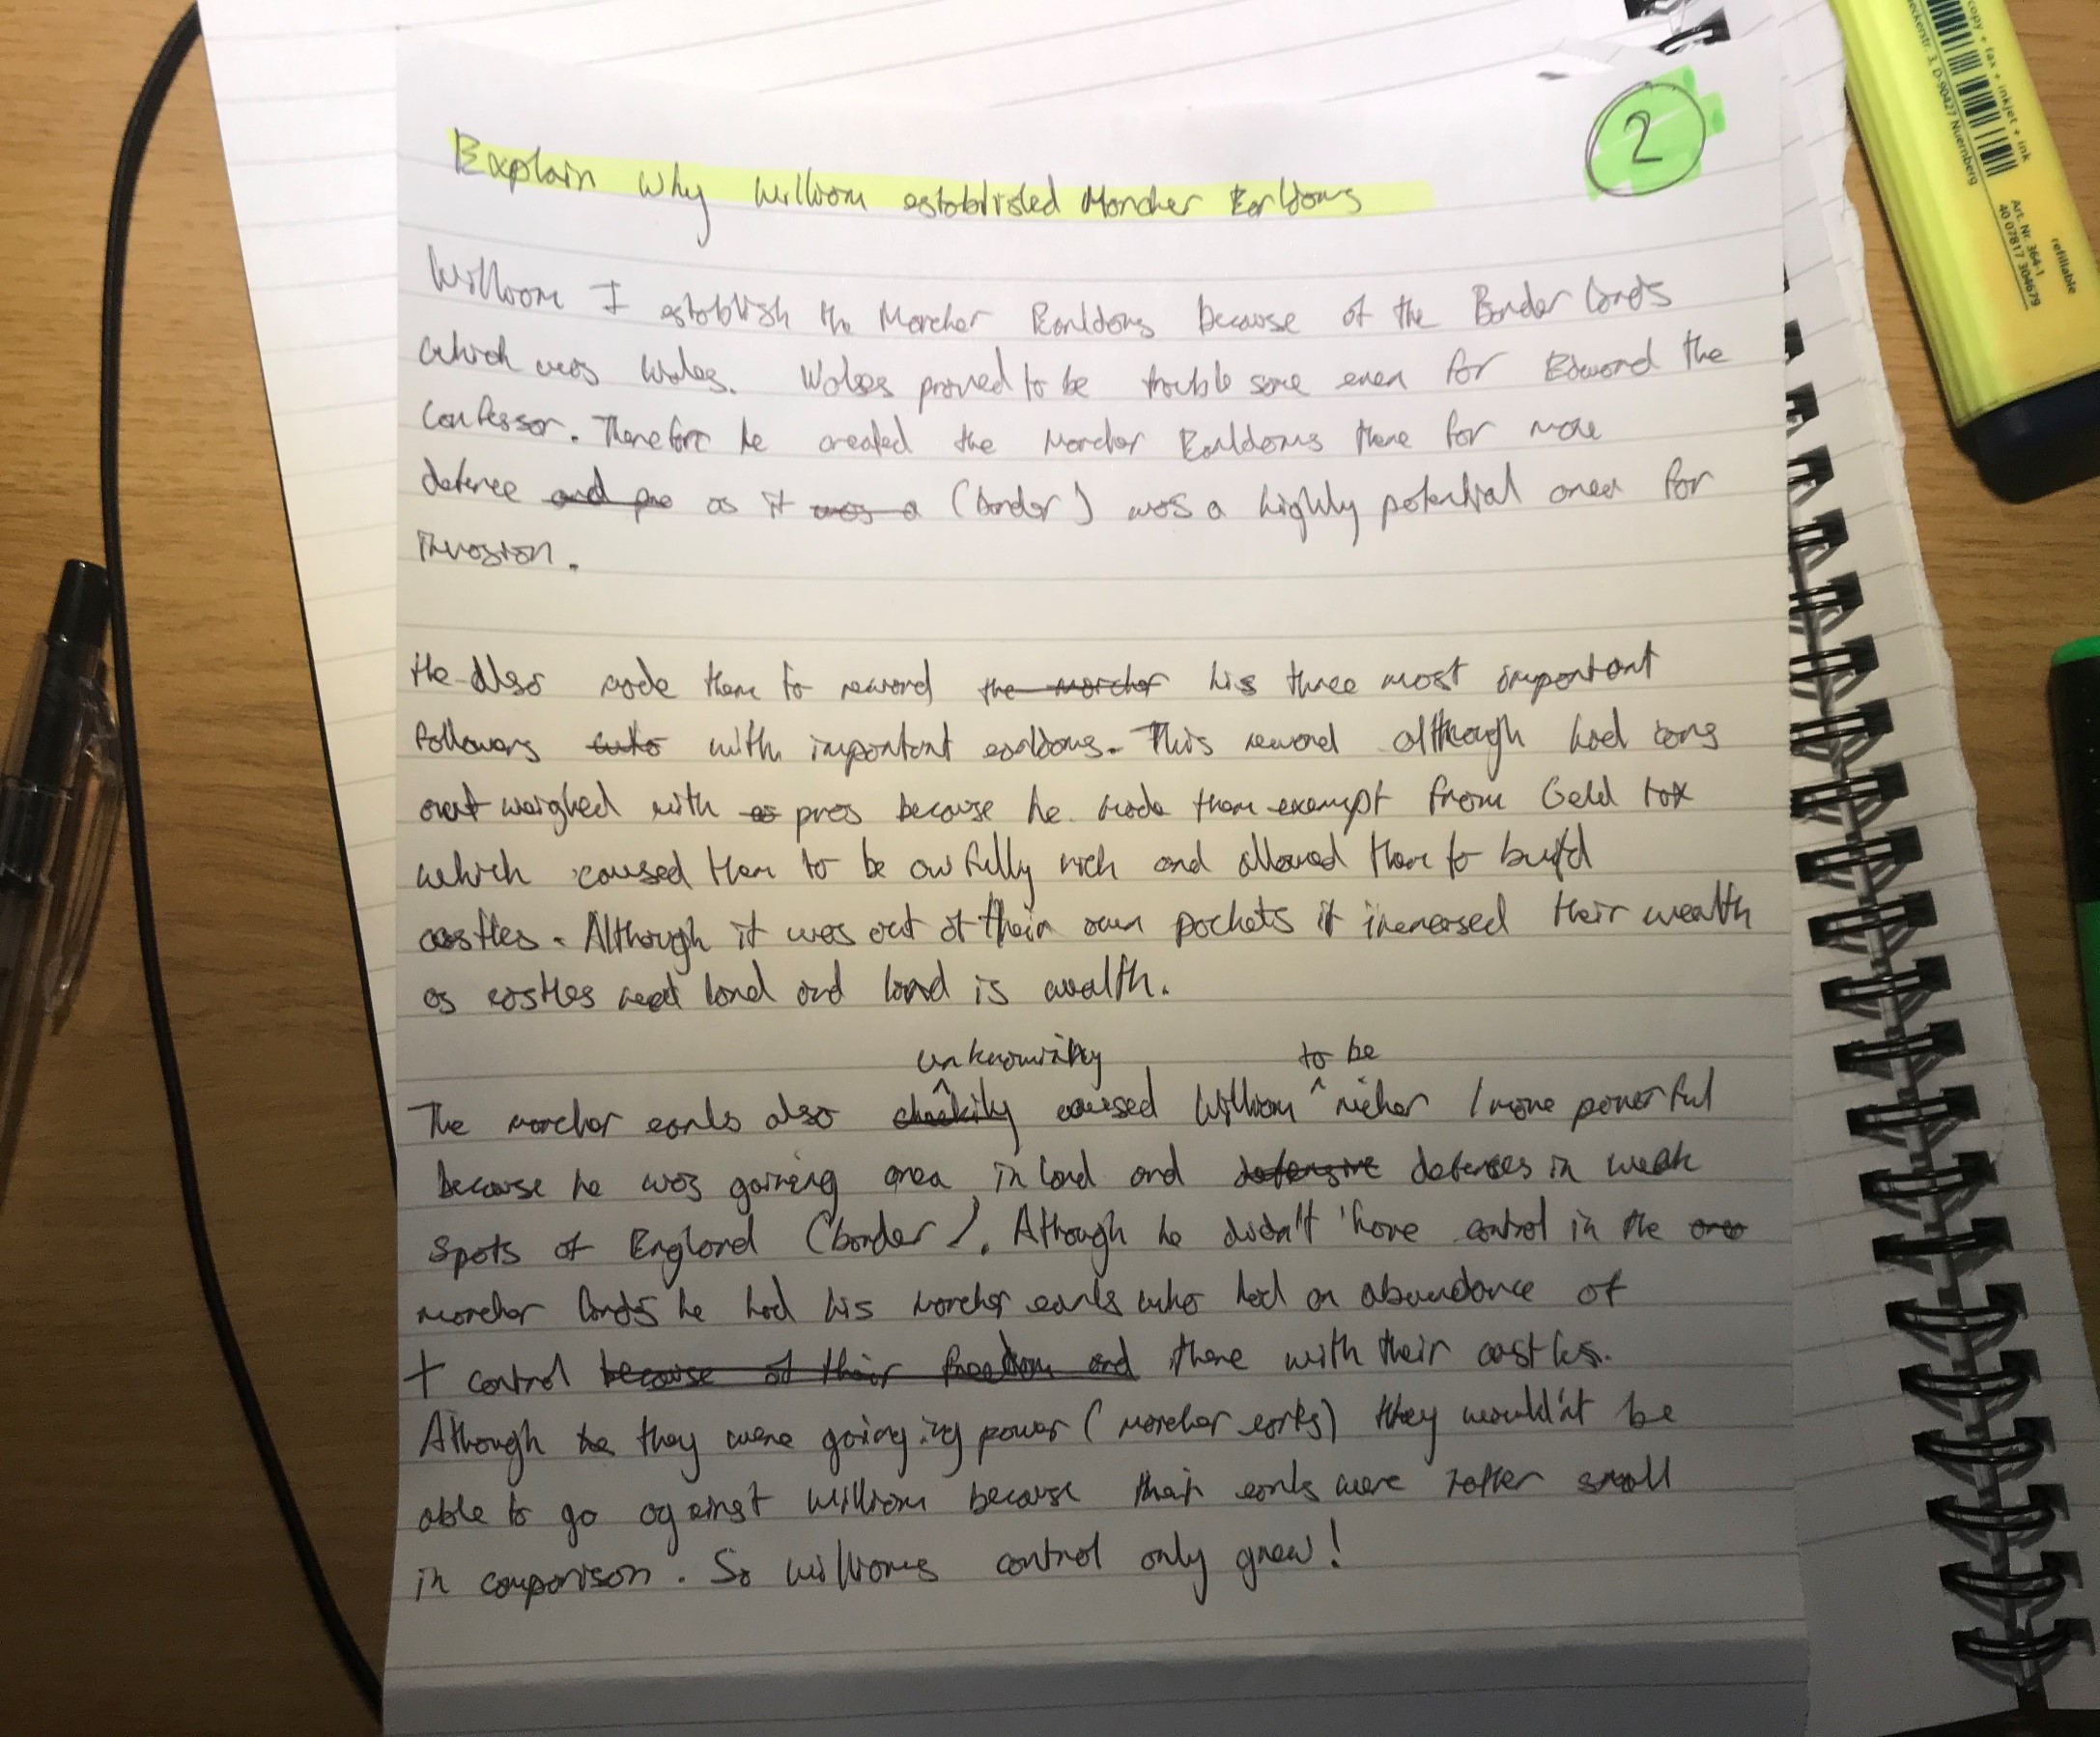 2
Explain why William established Marcher Earldoms
William I establish the Marcher Earldoms because of the Border lands
which was Wales. Wales proved to be trouble some even for Edward the
Confessor. Therefore he created the Marcher Earldoms there for more
defence and pro as it was a (border) was a highly potential area for
invasion.
He also made them to reward the marcher his three most important
followers who with important earldoms. This reward although had cons
out weighed with pros because he made them exempt from Geld tax
which caused them to be awfully rich and allowed them to build
castles. Although it was out of their own pockets it increased their wealth
as castles need land and land is wealth.
unknowinly to be
The marcher earls also caused William richer / more powerful
because he was gaining area in land and defensive defences in weak
spots of England (border). Although he didn't have control in the
marcher lands he had his marcher earls who had an abundance of
control because of their freedom and there with their castles.
Although he they were gaining power (marcher earls) they wouldn't be
able to go against William because their earls were small
in comparison. So williams control only grew!
copy + fax + inkjet + ink
3, D-90427 Nuernberg
Art. Nr. 364-1
40 07817 304679
refillable